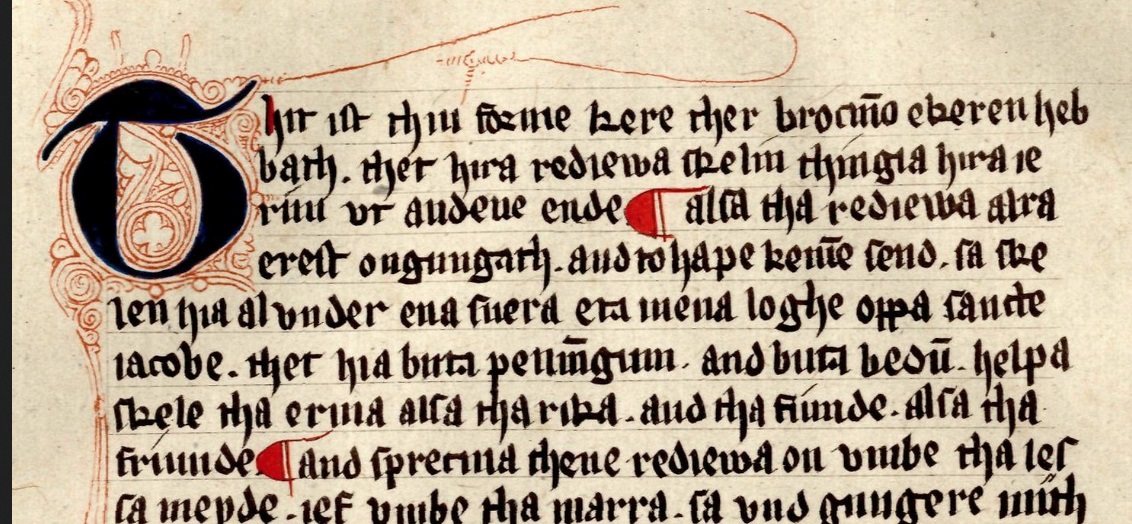 Thit ist thiu forme kere ther brocmẽ ekeren heb
bath. thet hira rediewa skelin thingia hira ie
rim vt andeue ende ¶ alsa tha rediewa alra
erest ongungath. and to hape kemẽ send. sa ske
len hia al vnder ena suera eta mena loghe oppa sancte
iacobe. thet hia buta pennĩgum. and buta bedũ. helpa
skele tha erma alsa tha rika. and tha fiúnde. alsa tha
friunde ¶ and sprectma thene rediewa on vmbe tha les
sa meyde. ief vmbe tha marra. sa vnd gungere mith